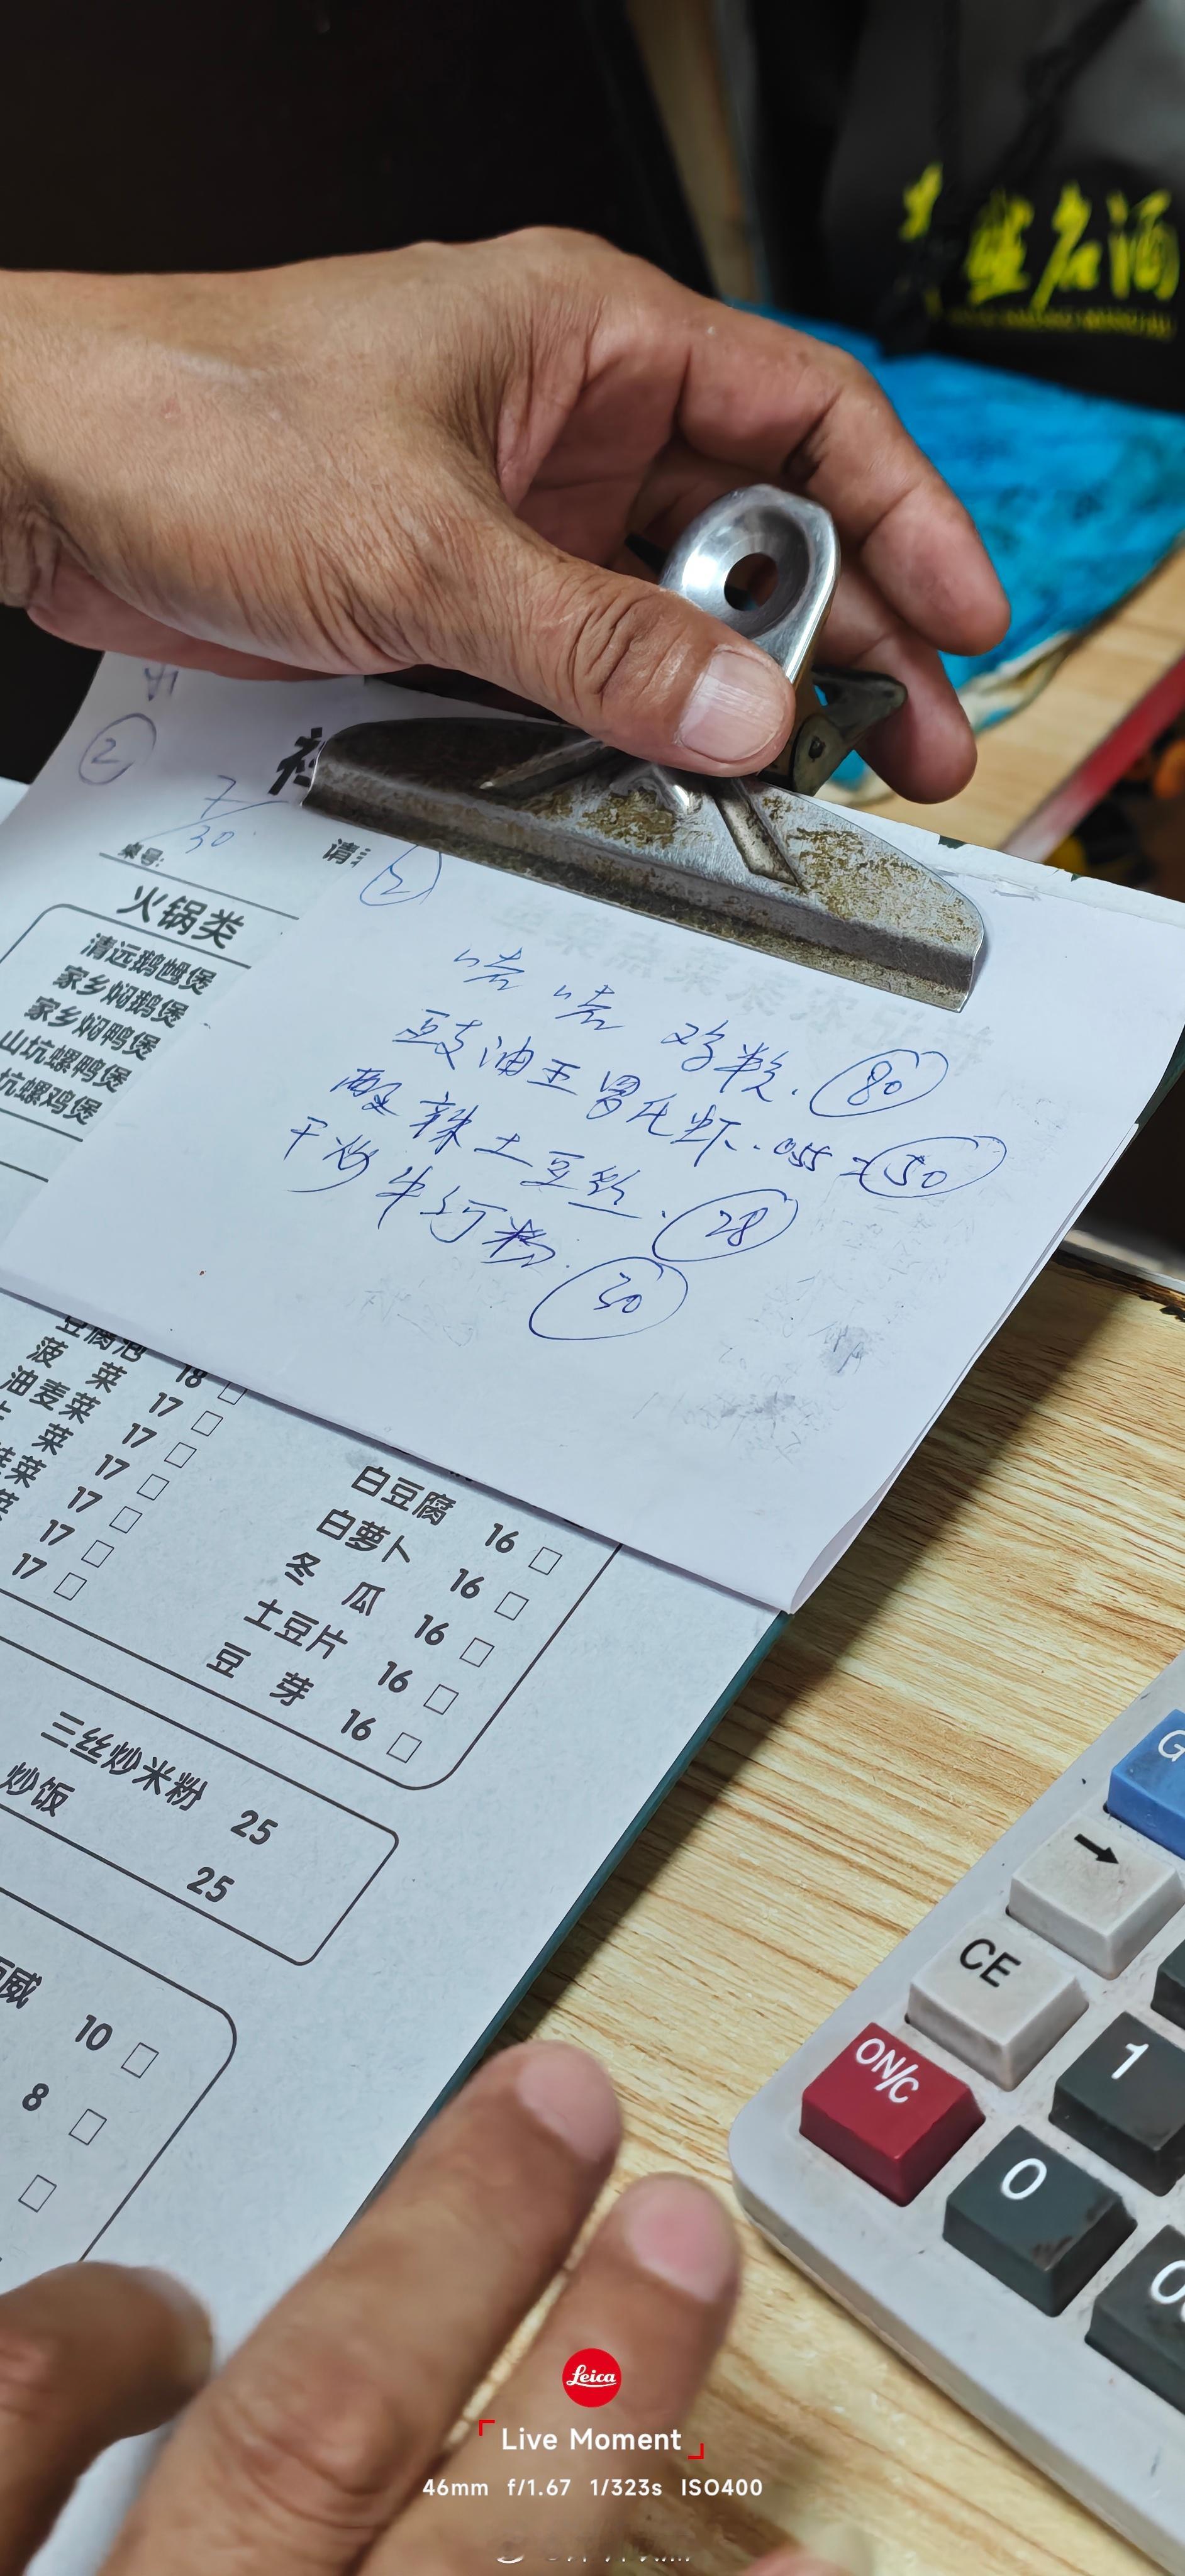 名酒
②
7/30
桌号:
请
②
火锅类
清远鹅乸煲
家乡焖鹅煲
家乡焖鸭煲
山坑螺鸭煲
坑螺鸡煲
啫啫鸡 80
豉油王罗氏虾 055 50
酸辣土豆丝 28
干炒牛河粉 30
豆腐泡 18 □
菠菜 17 □
油麦菜 17 □
菜 17 □
菜 17 □
菜 17 □
17 □
白豆腐 16 □
白萝卜 16 □
冬瓜 16 □
土豆片 16 □
豆芽 16 □
三丝炒米粉 25
炒饭 25
威 10 □
8 □
□
G
→
CE
ON/C
1
0
Leica
Live Moment
46mm f/1.67 1/323s ISO400